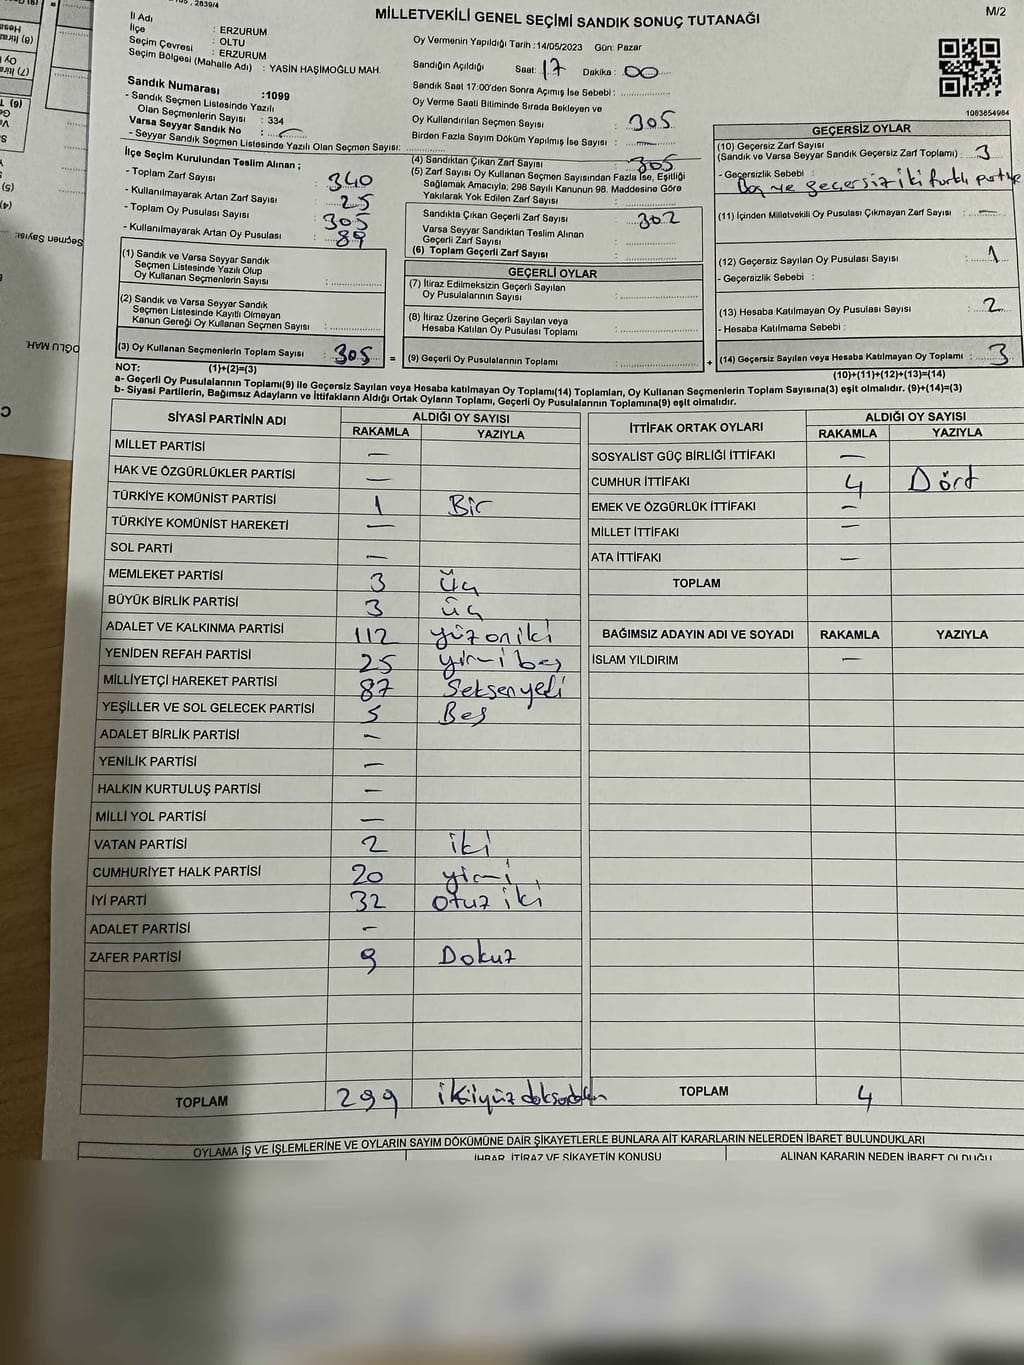 MİLLETVEKİLİ GENEL SEÇİMİ SANDIK SONUÇ TUTANAĞI
M/2
İl Adı : ERZURUM
İlçe : OLTU
Seçim Çevresi : ERZURUM
Seçim Bölgesi (Mahalle Adı) : YASİN HAŞİMOĞLU MAH.
Sandık Numarası :1099
- Sandık Seçmen Listesinde Yazılı
Olan Seçmenlerin Sayısı : 334
Varsa Seyyar Sandık No :
- Seyyar Sandık Seçmen Listesinde Yazılı Olan Seçmen Sayısı:
İlçe Seçim Kurulundan Teslim Alınan ;
- Toplam Zarf Sayısı : 340
- Kullanılmayarak Artan Zarf Sayısı : 25
- Toplam Oy Pusulası Sayısı : 305
- Kullanılmayarak Artan Oy Pusulası : 89
(1) Sandık ve Varsa Seyyar Sandık
Seçmen Listesinde Yazılı Olup
Oy Kullanan Seçmenlerin Sayısı :
(2) Sandık ve Varsa Seyyar Sandık
Seçmen Listesinde Kayıtlı Olmayan
Kanun Gereği Oy Kullanan Seçmen Sayısı :
(3) Oy Kullanan Seçmenlerin Toplam Sayısı : 305 =
Oy Vermenin Yapıldığı Tarih :14/05/2023 Gün: Pazar
Sandığın Açıldığı Saat: 17 Dakika : 00
Sandık Saat 17:00'den Sonra Açımış İse Sebebi :
Oy Verme Saati Bitiminde Sırada Bekleyen ve
Oy Kullandırılan Seçmen Sayısı : 305
Birden Fazla Sayım Döküm Yapılmış İse Sayısı : —
(4) Sandıktan Çıkan Zarf Sayısı : 305
(5) Zarf Sayısı Oy Kullanan Seçmen Sayısından Fazla İse, Eşitliği
Sağlamak Amacıyla, 298 Sayılı Kanunun 98. Maddesine Göre
Yakılarak Yok Edilen Zarf Sayısı :
Sandıkta Çıkan Geçerli Zarf Sayısı : 302
Varsa Seyyar Sandıktan Teslim Alınan
Geçerli Zarf Sayısı :
(6) Toplam Geçerli Zarf Sayısı :
GEÇERLİ OYLAR
(7) İtiraz Edilmeksizin Geçerli Sayılan
Oy Pusulalarının Sayısı :
(8) İtiraz Üzerine Geçerli Sayılan veya
Hesaba Katılan Oy Pusulası Toplamı :
(9) Geçerli Oy Pusulalarının Toplamı : +
1083654984
GEÇERSİZ OYLAR
(10) Geçersiz Zarf Sayısı
(Sandık ve Varsa Seyyar Sandık Geçersiz Zarf Toplamı) : 3
- Geçersizlik Sebebi : Boş ve geçersiz iki farklı partiye
(11) İçinden Milletvekili Oy Pusulası Çıkmayan Zarf Sayısı : —
(12) Geçersiz Sayılan Oy Pusulası Sayısı : 1
- Geçersizlik Sebebi :
(13) Hesaba Katılmayan Oy Pusulası Sayısı : 2
- Hesaba Katılmama Sebebi :
(14) Geçersiz Sayılan veya Hesaba Katılmayan Oy Toplamı : 3
NOT: (1)+(2)=(3)
(10)+(11)+(12)+(13)=(14)
a- Geçerli Oy Pusulalarının Toplamı(9) ile Geçersiz Sayılan veya Hesaba katılmayan Oy Toplamı(14) Toplamları, Oy Kullanan Seçmenlerin Toplam Sayısına(3) eşit olmalıdır. (9)+(14)=(3)
b- Siyasi Partilerin, Bağımsız Adayların ve İttifakların Aldığı Ortak Oyların Toplamı, Geçerli Oy Pusulalarının Toplamına(9) eşit olmalıdır.
SİYASİ PARTİNİN ADI ALDIĞI OY SAYISI
RAKAMLA YAZIYLA
MİLLET PARTİSİ —
HAK VE ÖZGÜRLÜKLER PARTİSİ —
TÜRKİYE KOMÜNİST PARTİSİ 1 Bir
TÜRKİYE KOMÜNİST HAREKETİ —
SOL PARTİ —
MEMLEKET PARTİSİ 3 Üç
BÜYÜK BİRLİK PARTİSİ 3 üç
ADALET VE KALKINMA PARTİSİ 112 yüz on iki
YENİDEN REFAH PARTİSİ 25 yirmi beş
MİLLİYETÇİ HAREKET PARTİSİ 87 Seksen yedi
YEŞİLLER VE SOL GELECEK PARTİSİ 5 Beş
ADALET BİRLİK PARTİSİ —
YENİLİK PARTİSİ —
HALKIN KURTULUŞ PARTİSİ —
MİLLİ YOL PARTİSİ —
VATAN PARTİSİ 2 iki
CUMHURİYET HALK PARTİSİ 20 yirmi
İYİ PARTİ 32 otuz iki
ADALET PARTİSİ —
ZAFER PARTİSİ 9 Dokuz
TOPLAM 299 ikiyüz doksan
İTTİFAK ORTAK OYLARI ALDIĞI OY SAYISI
RAKAMLA YAZIYLA
SOSYALİST GÜÇ BİRLİĞİ İTTİFAKI —
CUMHUR İTTİFAKI 4 Dört
EMEK VE ÖZGÜRLÜK İTTİFAKI —
MİLLET İTTİFAKI —
ATA İTTİFAKI —
TOPLAM
BAĞIMSIZ ADAYIN ADI VE SOYADI RAKAMLA YAZIYLA
İSLAM YILDIRIM —
TOPLAM 4
OYLAMA İŞ VE İŞLEMLERİNE VE OYLARIN SAYIM DÖKÜMÜNE DAİR ŞİKAYETLERLE BUNLARA AİT KARARLARIN NELERDEN İBARET BULUNDUKLARI
İHBAR, İTİRAZ VE ŞİKAYETİN KONUSU
ALINAN KARARIN NEDEN İBARET OLDUĞU